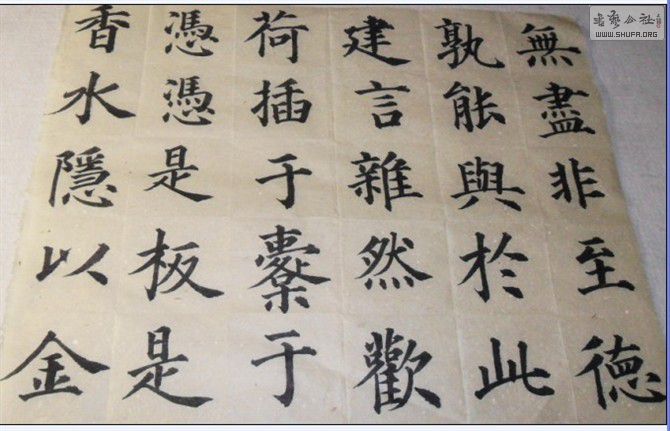 無盡非至德
孰能與於此
建言雜然歡
荷插于橐于
憑憑是板是
香水隱以金
書藝公社
WWW.SHUFA.ORG